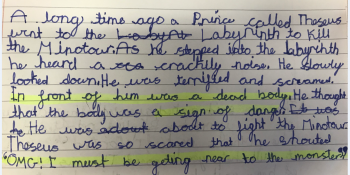 A long time ago a Prince called Theseus
went to the Labyrinth to kill
the Minotaur. As he stepped into the labyrinth
he heard a crackily noise. He slowly
looked down. He was terrified and screamed.
In front of him was a dead body. He thought
that the body was a sign of danger. It was
he He was about to fight the Minotaur
Theseus was so scared that he shouted
"OMG! I must be going near to the monster!"